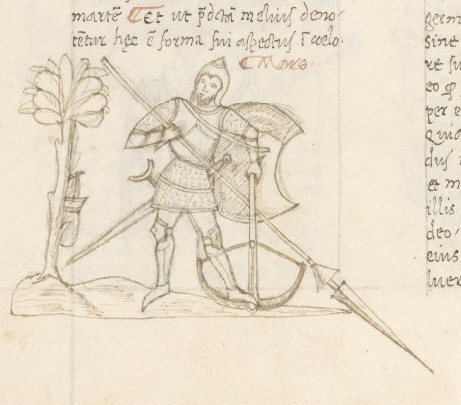 martē ⸿ Et ut p̄dcta melius deno-
tētur hęc ē forma sui aspectus ī coelo.
⸿ Mars
germ
sine
re su
eo ꝙ
per e
Quia
dus
et m
illis
deo.
eius
luer